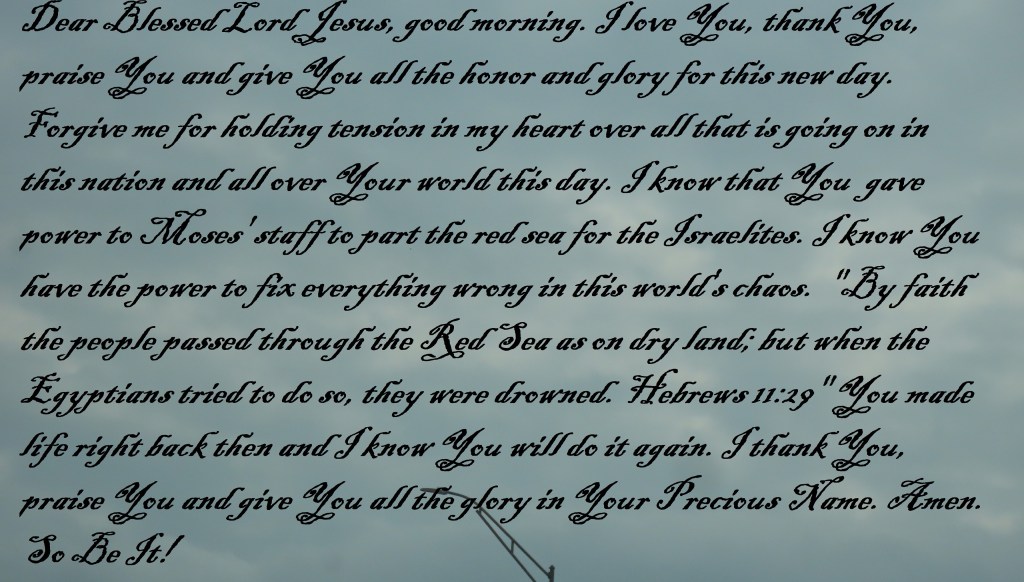 Dear Blessed Lord Jesus, good morning. I love You, thank You,
praise You and give You all the honor and glory for this new day.
Forgive me for holding tension in my heart over all that is going on in
this nation and all over Your world this day. I know that You gave
power to Moses' staff to part the red sea for the Israelites. I know You
have the power to fix everything wrong in this world's chaos. "By faith
the people passed through the Red Sea as on dry land; but when the
Egyptians tried to do so, they were drowned. Hebrews 11:29" You made
life right back then and I know You will do it again. I thank You,
praise You and give You all the glory in Your Precious Name. Amen.
So Be It!